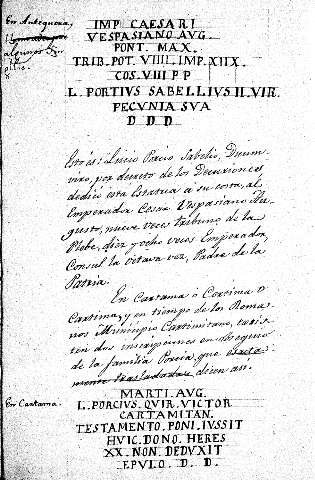 En Antequera,
IMP CAESARI
VESPASIANO AUG.
PONT. MAX.
TRIB. POT. VIIII. IMP. XIIX.
COS. VIII P P
L. PORTIUS SABELLIUS. II. VIR.
PECVNIA SVA
D D D
Esto es: Lucio Porcio Sabelio, Duum-
viro, por decreto de los Decuriones
dedicó esta Estatua a su costa, al
Emperador Cesar Vespasiano Au-
gusto, nueve veces tribuno de la
Plebe, diez y ocho veces Emperador,
Consul la octava vez, Padre de la
Patria.
En Cartama ó
Cartima, y en tiempo de los Roma-
nos Municipio Cartimitano,
ten dos inscripciones en
de la familia Porcia, que
trasladadas, dicen asi.
En Cartama.
MARTI. AUG.
L. PORCIUS. QUIR. VICTOR
CARTAMITAN.
TESTAMENTO. PONI. IUSSIT
HUIC. DONO. HERES
XX. NON. DEDUXIT
EPULO. D. D.